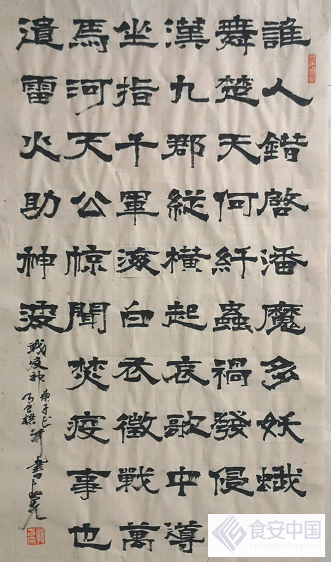 誰人錯啓潘魔多妖
舞楚天何纤蟲禍發侵
漢九郡縱橫起哀歌中導
坐指千軍白衣徵戰萬
馬河天公惊聞焚疫事也
遣雷火助神
戰疫歌
庚子
食安中国